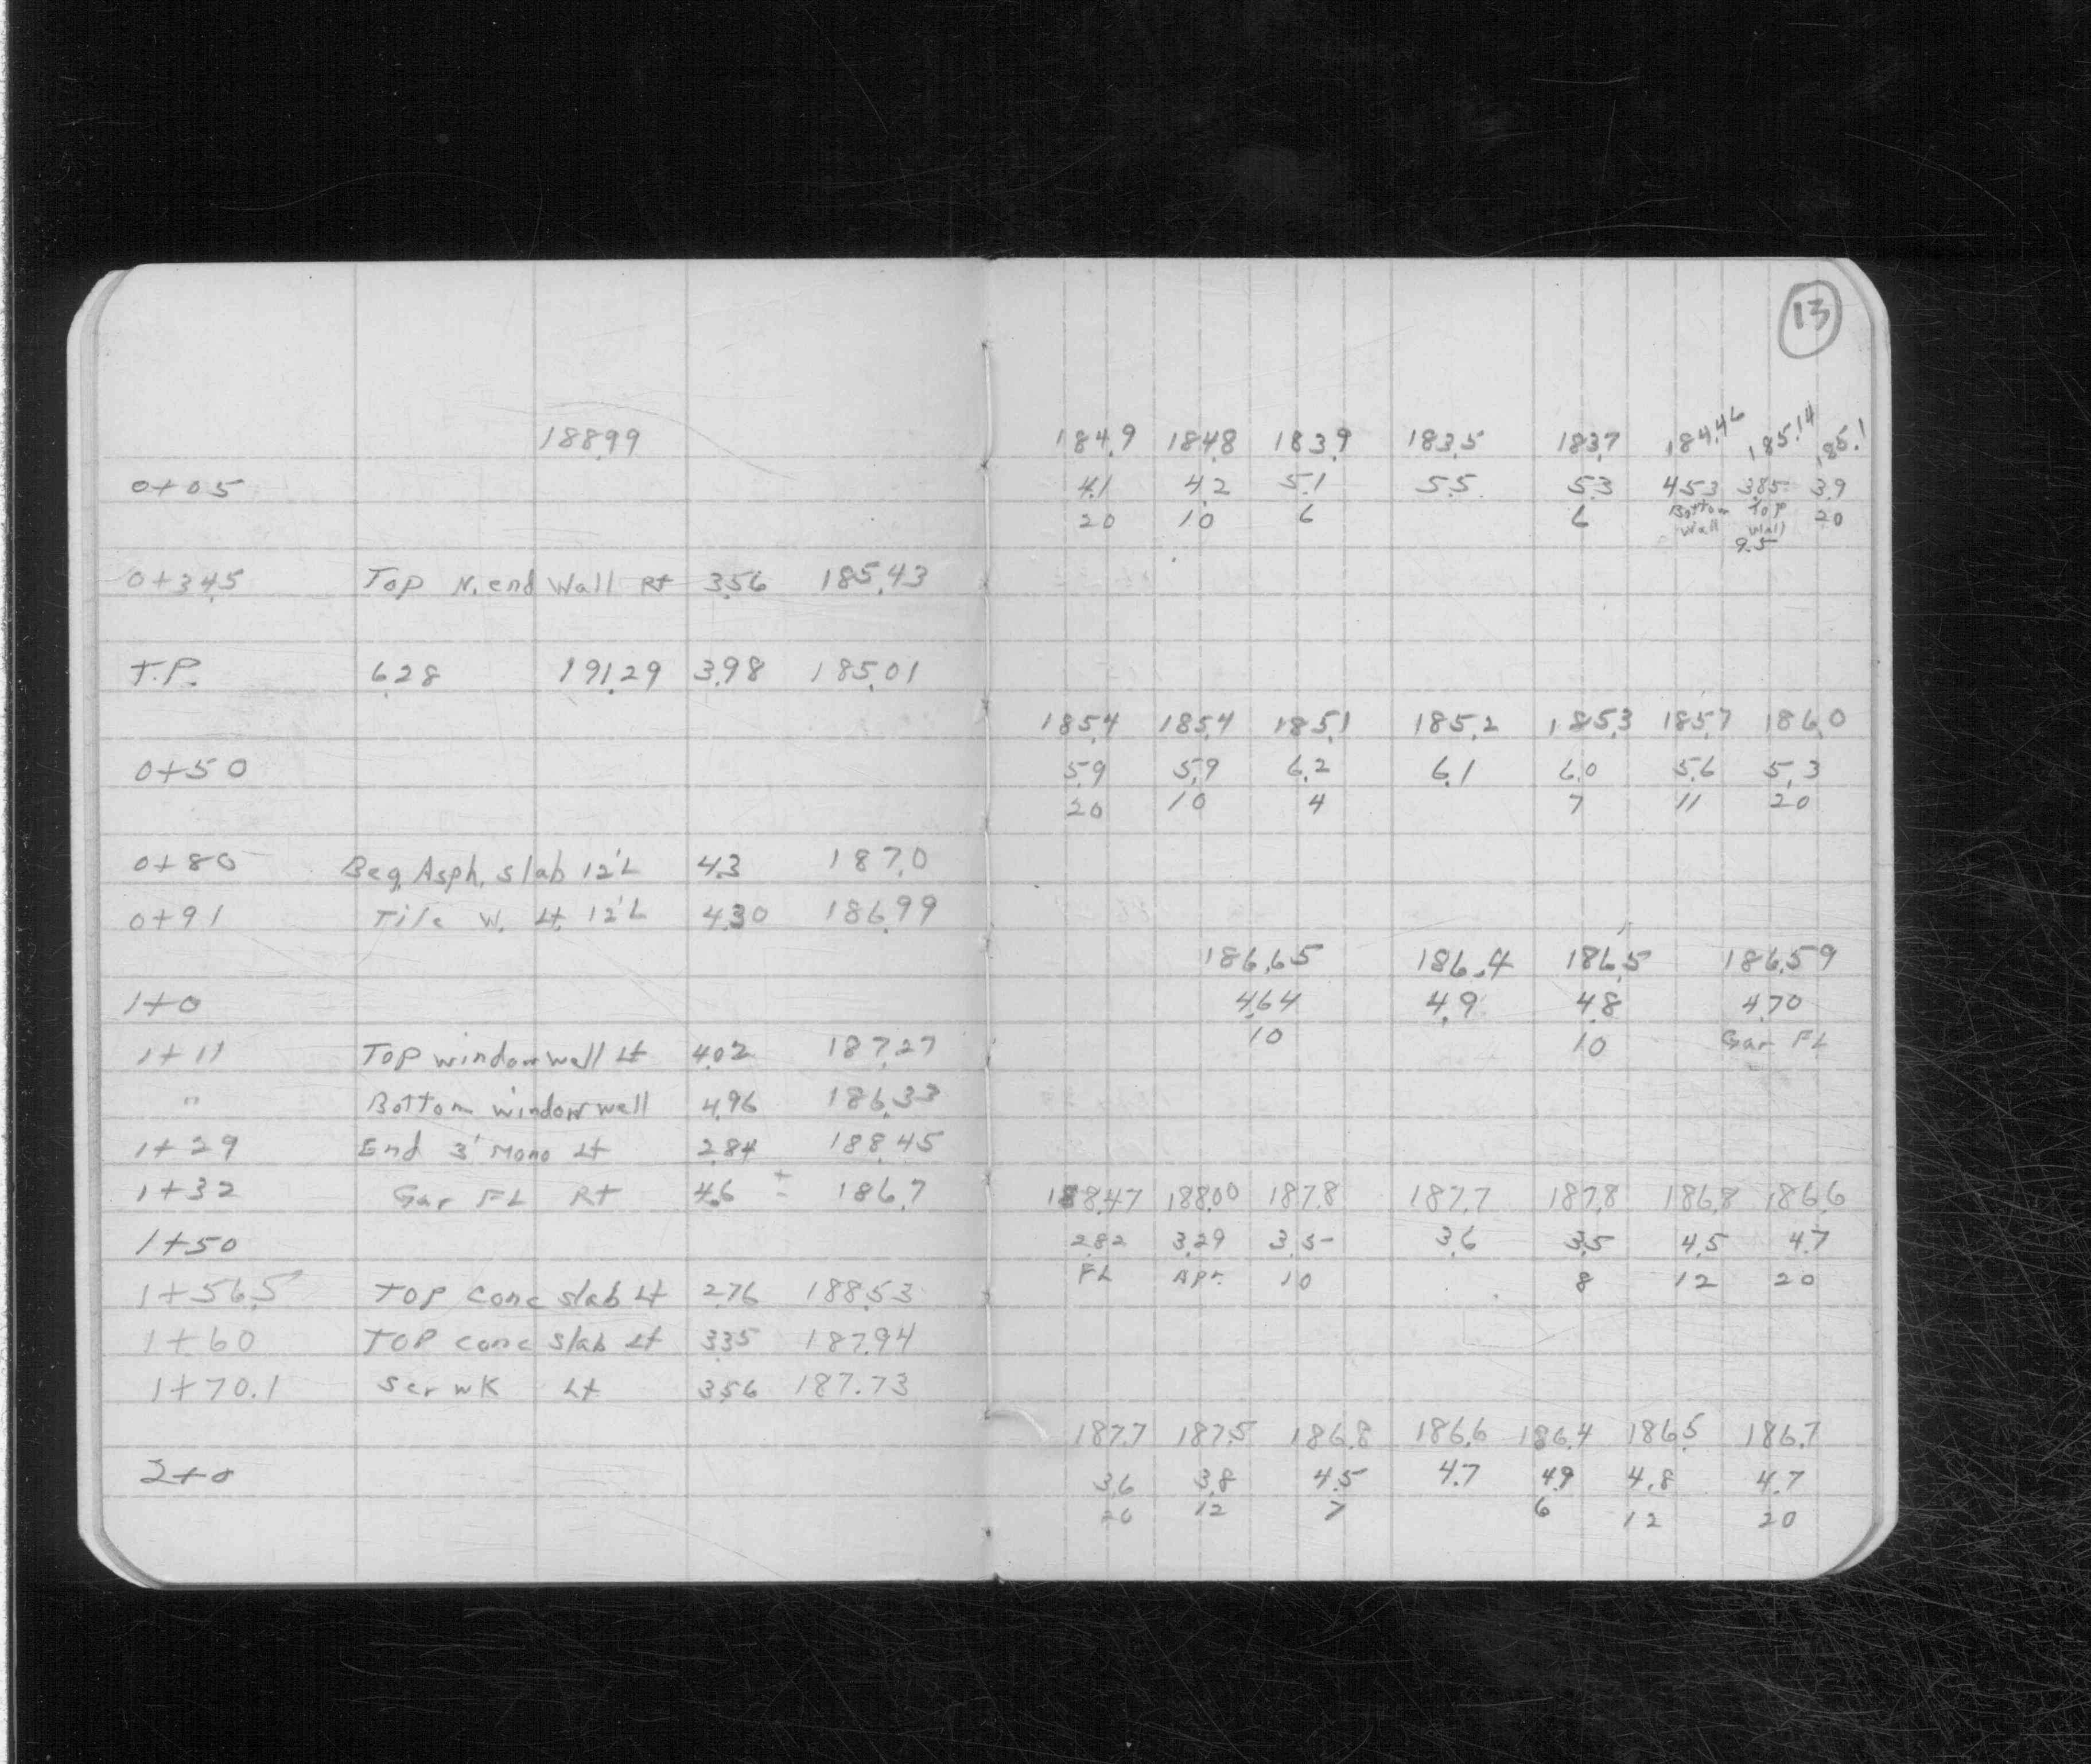 13
188.99
184.9 184.8 183.9 183.5 183.7 184.46 185.14 185.1
0+05 4.1 4.2 5.1 5.5 5.3 4.53 3.85 3.9
20 10 6 6 Bottom Top 20
Wall Wall
9.5
0+34.5 Top N. end Wall Rt 3.56 185.43
T.P. 6.28 191.29 3.98 185.01
185.4 185.4 185.1 185.2 185.3 185.7 186.0
0+50 5.9 5.9 6.2 6.1 6.0 5.6 5.3
20 10 4 7 11 20
0+80 Beg. Asph. slab 12'L 4.3 187.0
0+91 Tile W. Lt. 12'L 4.30 186.99
186.65 186.4 186.5 186.59
1+0 4.64 4.9 4.8 4.70
10 10 Gar FL
1+11 Top window well Lt 4.02 187.27
" Bottom window well 4.96 186.33
1+29 End 3' Mono Lt 2.84 188.45
1+32 Gar FL Rt 4.6 ± 186.7
188.47 188.00 187.8 187.7 187.8 186.8 186.6
1+50 2.82 3.29 3.5 3.6 3.5 4.5 4.7
FL Apr. 10 8 12 20
1+56.5 Top conc slab Lt 2.76 188.53
1+60 Top conc slab Lt 3.35 187.94
1+70.1 Ser WK Lt 3.56 187.73
187.7 187.5 186.8 186.6 186.4 186.5 186.7
2+0 3.6 3.8 4.5 4.7 4.9 4.8 4.7
20 12 7 6 12 20